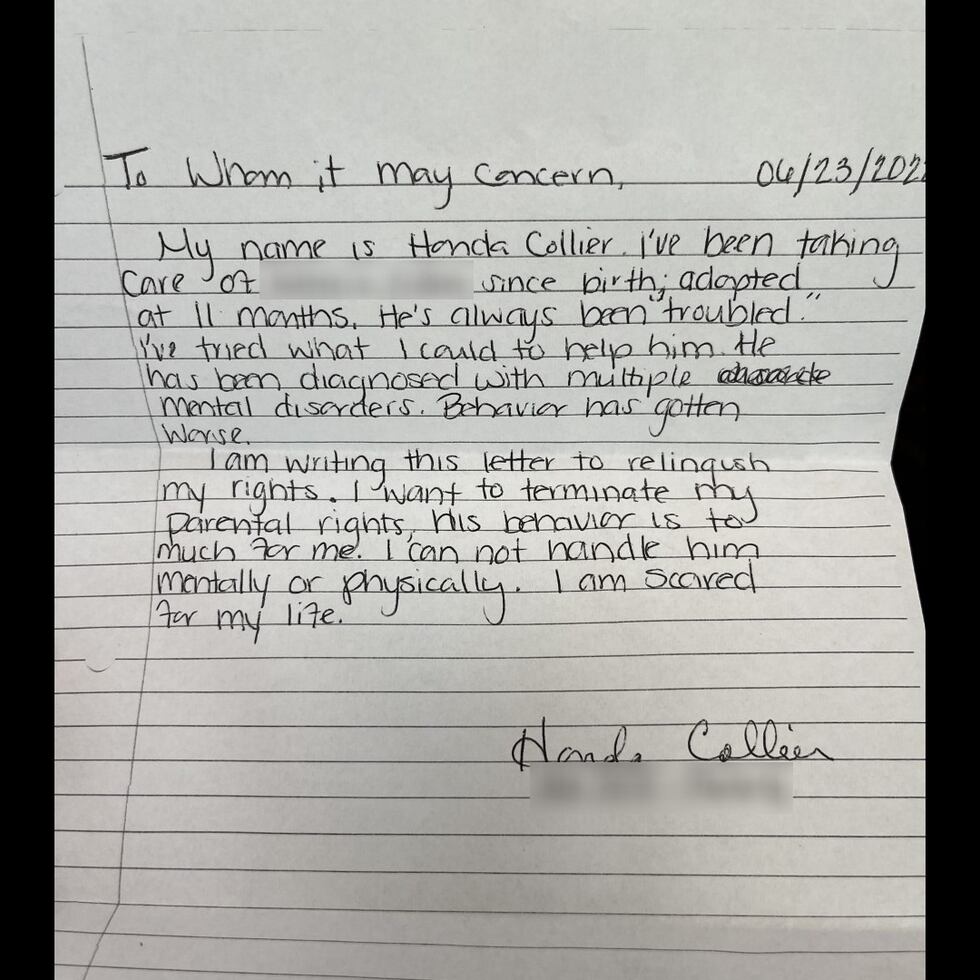 To Whom it may Concern, 06/23/202
My name is Honda Collier. I've been taking
Care of since birth; adopted
at 11 months. He's always been "troubled."
I've tried what I could to help him. He
has been diagnosed with multiple
mental disorders. Behavior has gotten
worse.
I am writing this letter to relinqush
my rights. I want to terminate my
parental rights, his behavior is to
much for me. I can not handle him
mentally or physically. I am scared
for my life.
Honda Collier